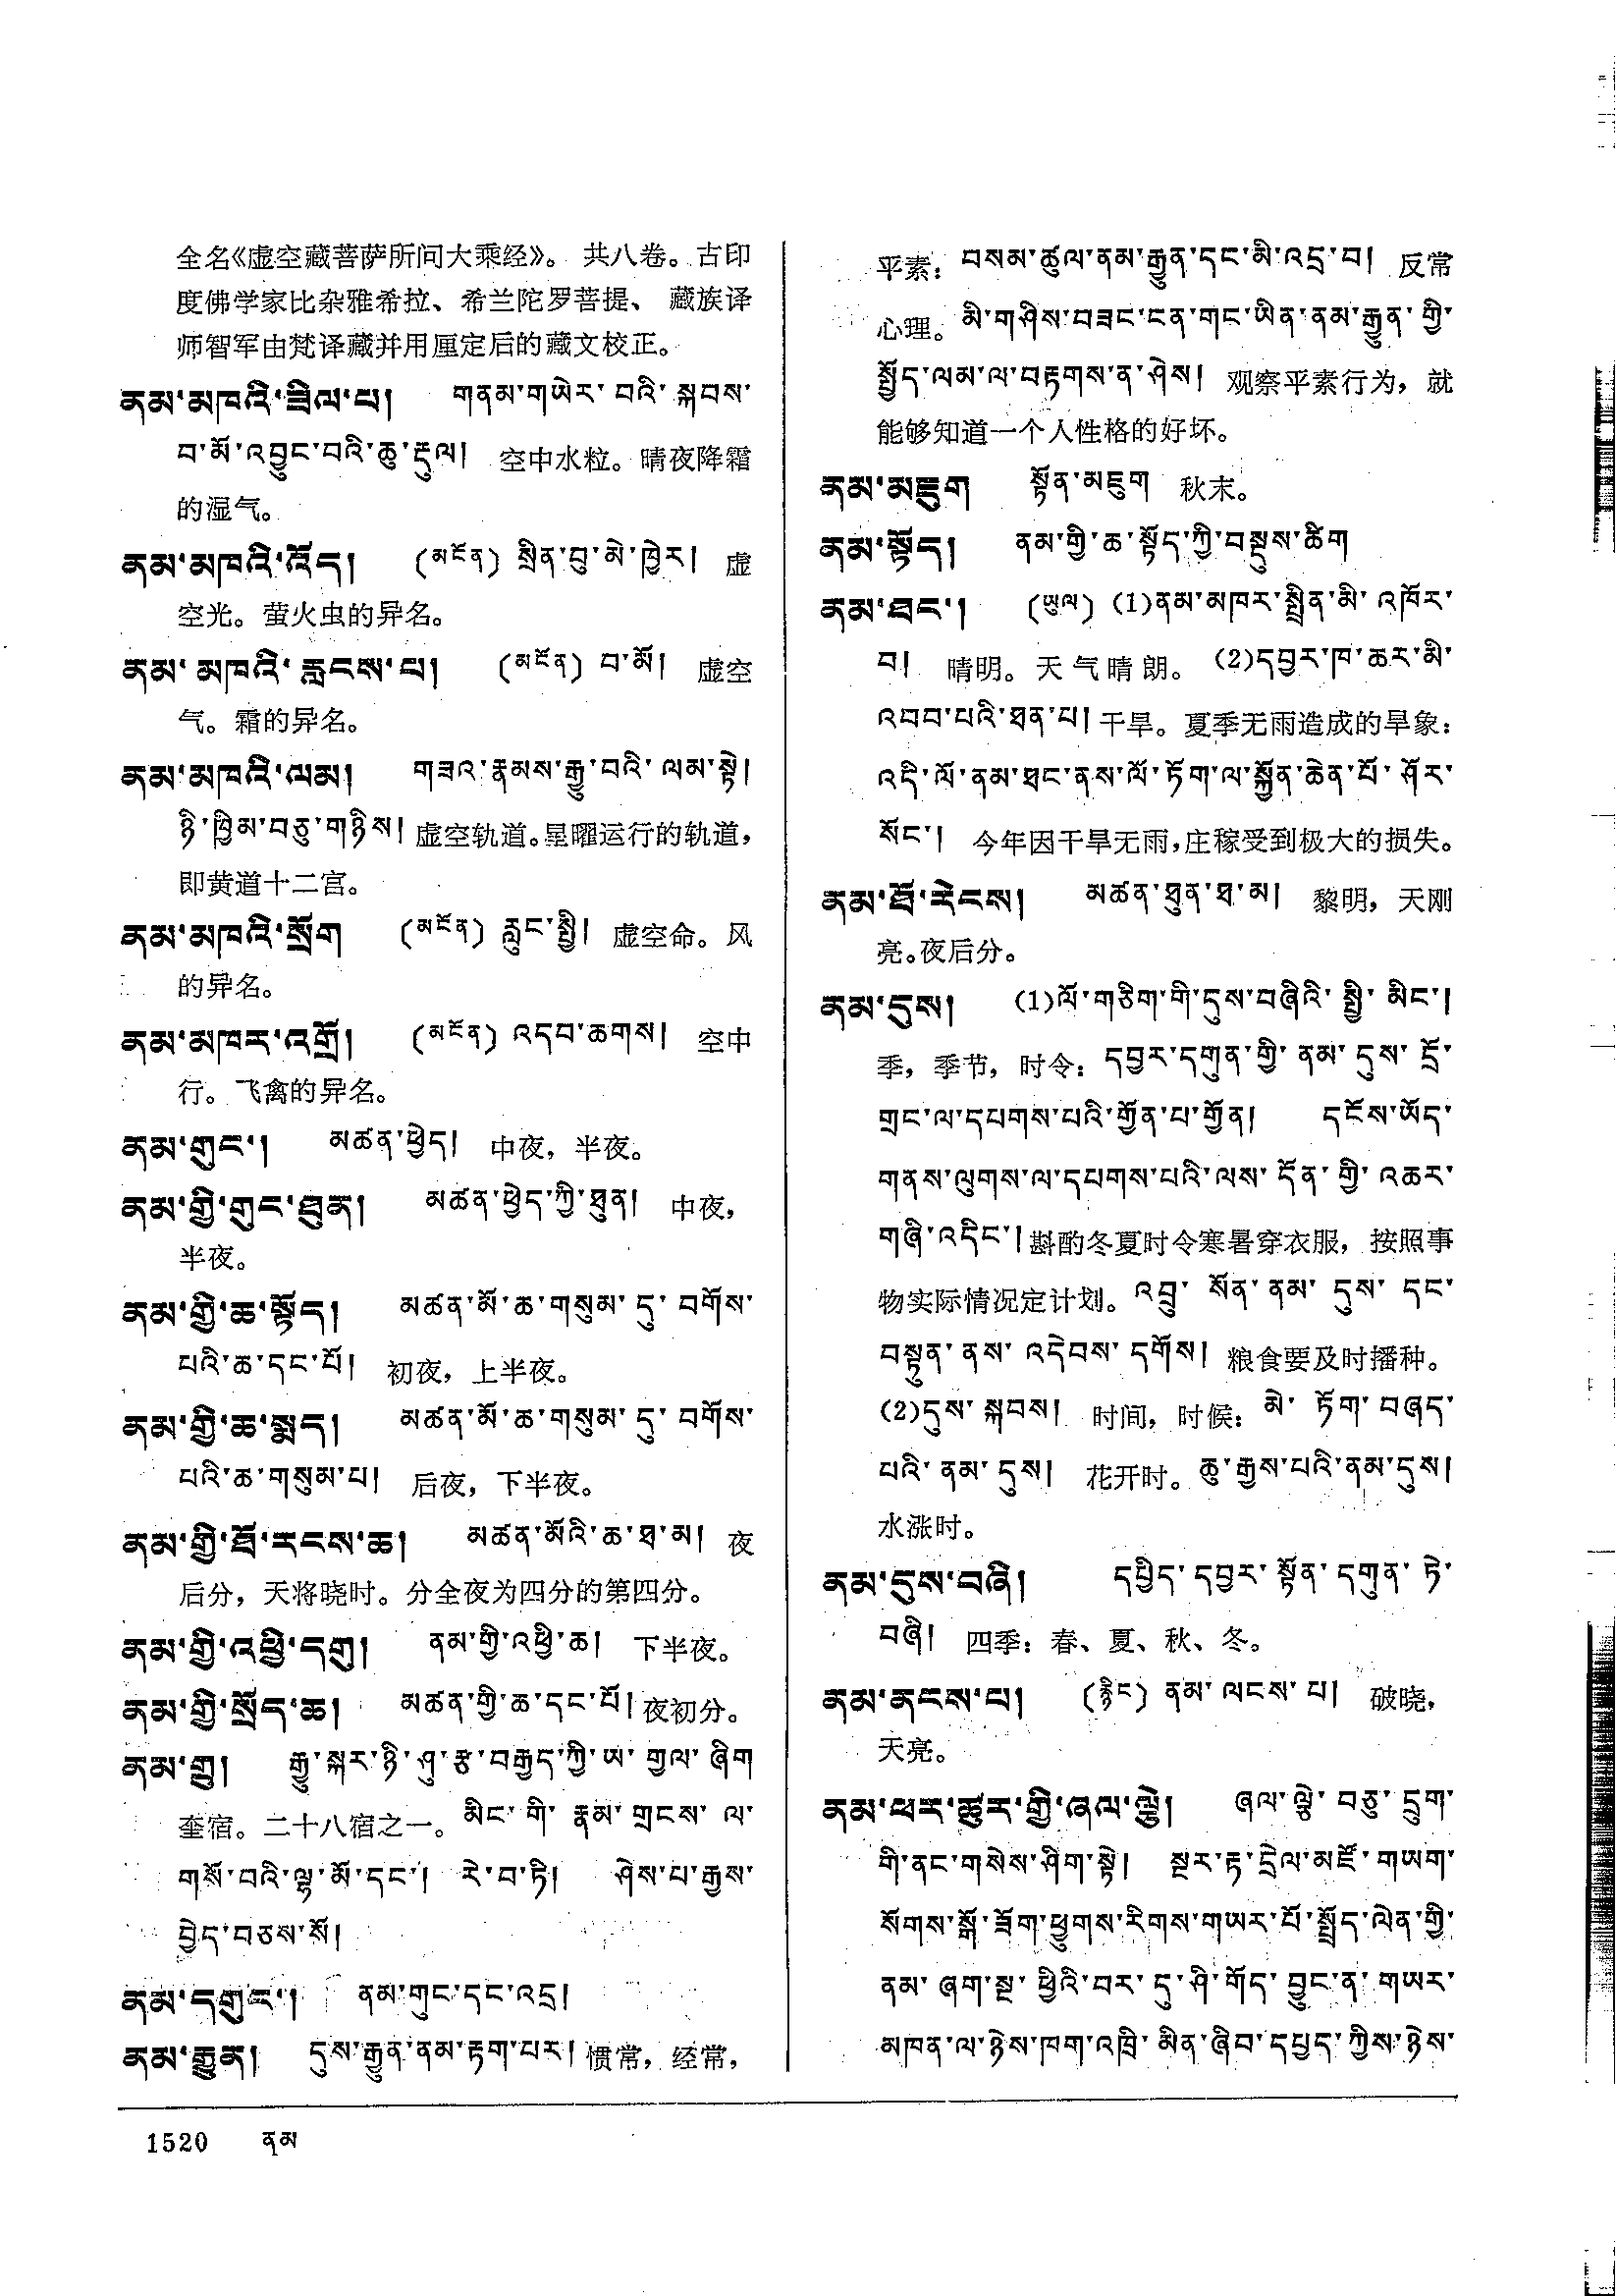 全名《虚空藏菩萨所问大乘经》。 共八卷。古印
度佛学家比杂雅希拉、希兰陀罗菩提、 藏族译
师智军由梵译藏并用厘定后的藏文校正。
ནམ་མཁའི་ཟིལ་པ། གནམ་གཡེར་བའི་སྐབས་
བ་མོ་འབྱུང་བའི་ཆུ་རྡུལ། 空中水粒。晴夜降霜
的湿气。
ནམ་མཁའི་འོད། (མངོན) སྲིན་བུ་མེ་ཁྱེར། 虚
空光。萤火虫的异名。
ནམ་མཁའི་རླངས་པ། (མངོན) བ་མོ། 虚空
气。霜的异名。
ནམ་མཁའི་ལམ། གཟའ་རྣམས་རྒྱུ་བའི་ལམ་སྟེ།
ཉི་ཁྱིམ་བཅུ་གཉིས། 虚空轨道。星曜运行的轨道，
即黄道十二宫。
ནམ་མཁའི་སྲོག (མངོན) རླུང་སྤྱི། 虚空命。风
的异名。
ནམ་མཁར་འགྲོ། (མངོན) འདབ་ཆགས། 空中
行。飞禽的异名。
ནམ་གུང་། མཚན་ཕྱེད། 中夜，半夜。
ནམ་གྱི་གུང་ཐུན། མཚན་ཕྱེད་ཀྱི་ཐུན། 中夜，
半夜。
ནམ་གྱི་ཆ་སྟོད། མཚན་མོ་ཆ་གསུམ་དུ་བགོས་
པའི་ཆ་དང་པོ། 初夜，上半夜。
ནམ་གྱི་ཆ་སྨད། མཚན་མོ་ཆ་གསུམ་དུ་བགོས་
པའི་ཆ་གསུམ་པ། 后夜，下半夜。
ནམ་གྱི་ཐོ་རངས་ཆ། མཚན་མོའི་ཆ་ཐ་མ། 夜
后分，天将晓时。分全夜为四分的第四分。
ནམ་གྱི་འཕྱི་དགུ། ནམ་གྱི་འཕྱི་ཆ། 下半夜。
ནམ་གྱི་སྲོད་ཆ། མཚན་གྱི་ཆ་དང་པོ། 夜初分。
ནམ་གྲུ། རྒྱུ་སྐར་ཉི་ཤུ་རྩ་བརྒྱད་ཀྱི་ཡ་གྱལ་ཞིག
奎宿。二十八宿之一。མིང་གི་རྣམ་གྲངས་ལ་
གསོ་བའི་ལྷ་མོ་དང་། རེ་བ་ཏི། ཤེས་པ་རྒྱས་
བྱེད་བཅས་སོ།
ནམ་དགུང་། ནམ་གུང་དང་འདྲ།
ནམ་རྒྱུན། དུས་རྒྱུན་ནམ་རྟག་པར། 惯常，经常，
平素：བསམ་ཚུལ་ནམ་རྒྱུན་དང་མི་འདྲ་བ། 反常
心理。མི་གཤིས་བཟང་ངན་གང་ཡིན་ནམ་རྒྱུན་གྱི་
སྤྱོད་ལམ་ལ་བརྟགས་ན་ཤེས། 观察平素行为，就
能够知道一个人性格的好坏。
ནམ་མཇུག སྟོན་མཇུག 秋末。
ནམ་སྟོད། ནམ་གྱི་ཆ་སྟོད་ཀྱི་བསྡུས་ཚིག
ནམ་ཐང་། (ཡུལ) (1)ནམ་མཁར་སྤྲིན་མི་འཁོར་
བ། 晴明。天气晴朗。(2)དབྱར་ཁ་ཆར་མི་
འབབ་པའི་ཐན་པ། 干旱。夏季无雨造成的旱象：
འདི་ལོ་ནམ་ཐང་ནས་ལོ་ཏོག་ལ་སྐྱོན་ཆེན་པོ་ཤོར་
སོང་། 今年因干旱无雨，庄稼受到极大的损失。
ནམ་ཐོ་རེངས། མཚན་ཐུན་ཐ་མ། 黎明，天刚
亮。夜后分。
ནམ་དུས། (1)ལོ་གཅིག་གི་དུས་བཞིའི་སྤྱི་མིང་།
季，季节，时令：དབྱར་དགུན་གྱི་ནམ་དུས་དྲོ་
གྲང་ལ་དཔགས་པའི་གྱོན་པ་གྱོན། དངོས་ཡོད་
གནས་ལུགས་ལ་དཔགས་པའི་ལས་དོན་གྱི་འཆར་
གཞི་འདིང་། 斟酌冬夏时令寒暑穿衣服，按照事
物实际情况定计划。འབྲུ་སོན་ནམ་དུས་དང་
བསྟུན་ནས་འདེབས་དགོས། 粮食要及时播种。
(2)དུས་སྐབས། 时间，时候：མེ་ཏོག་བཞད་
པའི་ནམ་དུས། 花开时。ཆུ་རྒྱས་པའི་ནམ་དུས།
水涨时。
ནམ་དུས་བཞི། དཔྱིད་དབྱར་སྟོན་དགུན་ཏེ་
བཞི། 四季：春、夏、秋、冬。
ནམ་ནངས་པ། (རྙིང) ནམ་ལངས་པ། 破晓，
天亮。
ནམ་ཕར་ཚུར་གྱི་ཞལ་ལྕེ། ཞལ་ལྕེ་བཅུ་དྲུག་
གི་ནང་གསེས་ཤིག་སྟེ། སྔར་རྟ་དྲེལ་མཛོ་གཡག་
སོགས་སྒོ་ཟོག་ཕྱུགས་རིགས་གཡར་པོ་སྤྲོད་ལེན་གྱི་
ནམ་ཞག་སྔ་ཕྱིའི་བར་དུ་ཤི་གོད་བྱུང་ན་གཡར་
མཁན་ལ་ཉེས་ཁག་འཁྲི་མིན་ཞིབ་དཔྱད་ཀྱིས་ཉེས་
1520 ནམ